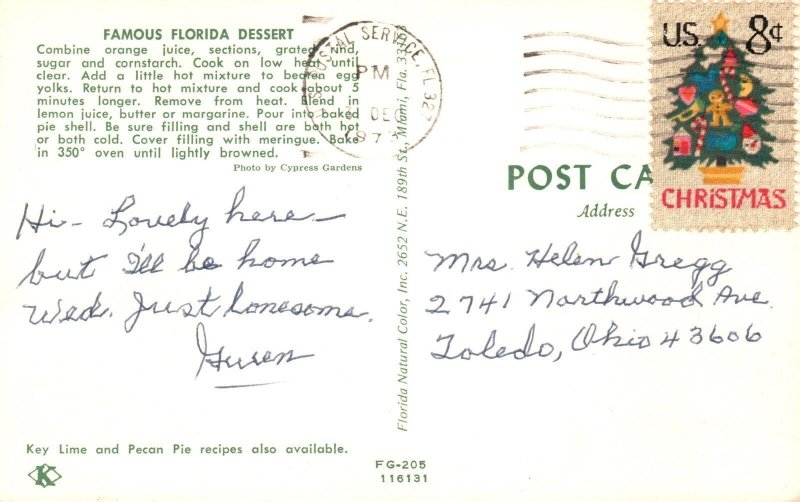 FAMOUS FLORIDA DESSERT
Combine orange juice, sections, grated rind,
sugar and cornstarch. Cook on low heat until
clear. Add a little hot mixture to beaten egg
yolks. Return to hot mixture and cook about 5
minutes longer. Remove from heat. Blend in
lemon juice, butter or margarine. Pour into baked
pie shell. Be sure filling and shell are both hot
or both cold. Cover filling with meringue. Bake
in 350° oven until lightly browned.
Photo by Cypress Gardens
Hi - Lovely here -
but I'll be home
Wed. Just lonesome.
Key Lime and Pecan Pie recipes also available.
K
Florida Natural Color, Inc. 2652 N.E. 189th St., Miami, Fla.
FG-205
116131
POSTAL SERVICE, FL
PM
DEC
U.S. 8¢
CHRISTMAS
POST CA
Address
Mrs. Helen Gregg
2741 Northwood Ave.
Toledo, Ohio 43606